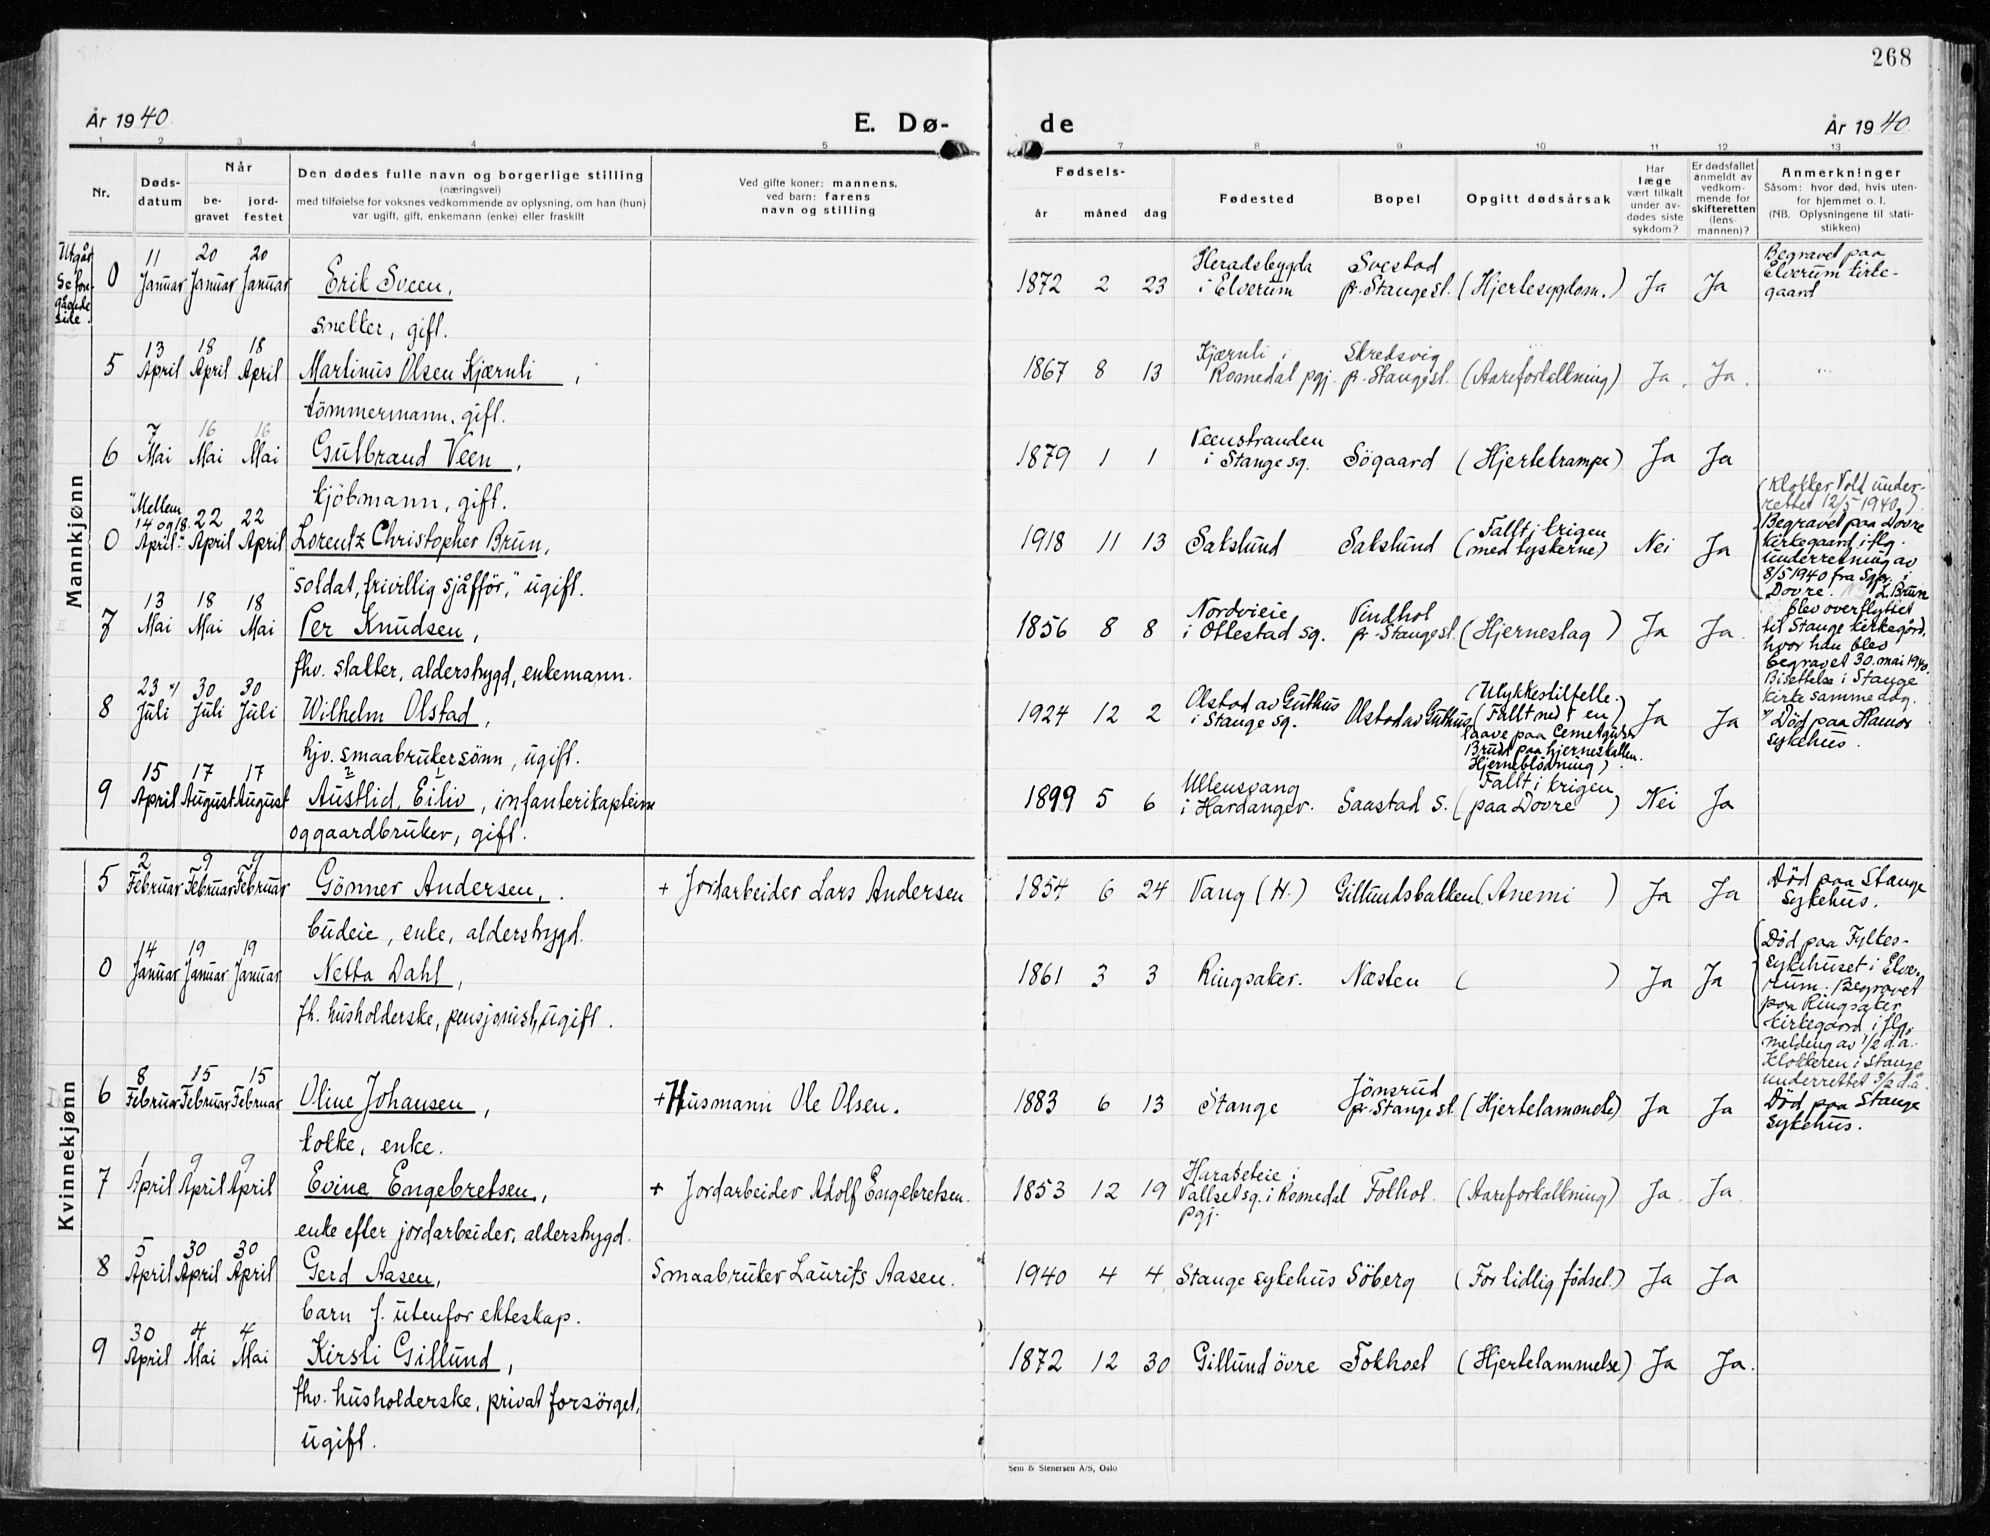 268
År 1940.
E. Dø-
de
År 1940.
1 2 3 4 5 7 8 9 10 11 12 13
Nr.
Døds-
datum
Når
be-
gravet
jord-
festet
Den dødes fulle navn og borgerlige stilling
(næringsvei)
med tilføielse for voksnes vedkommende av oplysning, om han (hun)
var ugift, gift, enkemann (enke) eller fraskilt
Ved gifte koner: mannens,
ved barn: farens
navn og stilling
Fødsels-
år måned dag
Fødested
Bopel
Opgitt dødsårsak
Har
læge
vært tilkalt
under av-
dødes siste
sykdom?
Er dødsfallet
anmeldt av
vedkom-
mende for
skifteretten
(lens-
mannen)?
Anmerkninger
Såsom: hvor død, hvis uten-
for hjemmet o. l.
(NB. Oplysningene til stati-
stikken)
Mannkjønn
Utgår
Se foregående
side.
0
11 Januar
20 Januar
20 Januar
Erik Sveen,
smelter, gift.
1872 2 23
Heradsbygda
i Elverum
Svestad
pr. Stange st.
(Hjertesygdom.)
Ja
Ja
Begravet paa
Elverum kirke-
gaard
5
13 April
18 April
18 April
Martinus Olsen Kjærnli,
tömmermann, gift.
1867 8 13
Kjærnli i
Romedal pgj.
Skredsvig
pr. Stange st.
(Aareforkalkning)
Ja.
Ja.
6
7 Mai
16 Mai
16 Mai
Gulbrand Veen,
kjöbmann, gift.
1879 1 1
Veenstranden
i Stange sg.
Sögaard
(Hjertekrampe)
Ja
Ja
0
"Mellem
14 og 18.
April."
22 April
22 April
Lorentz Christopher Brun,
"soldat, frivillig sjåfför," ugift.
1918 11 13
Sakslund
Sakslund
(Falt i krigen
med tyskerne)
Nei
Ja
(Klokker Volt under-
rettet 12/5 1940.)
Begravet paa Dovre
kirkegaard iflg.
underretning av
8/5 1940 fra Spr. i
Dovre. L. Brun
blev overflyttet
til Stange kirkegård,
hvor han blev
begravet 30. mai 1940.
Bisettelse i Stange
kirke samme dag.
7
13 Mai
18 Mai
18 Mai
Per Knudsen,
fhv. slakter, alderstrygd, enkemann.
1856 8 8
Nordvieie
i Ottestad sg.
Vindhol
pr. Stange st.
(Hjerneslag)
Ja
Ja.
8
23 x) Juli
30 Juli
30 Juli
Wilhelm Olstad,
hjv. smaabrukersönn, ugift.
1924 12 2
Olstad av Guthus
i Stange sg.
Olstad av Guthus
(Ulykkestilfelle.
(Falt ned i en
laave paa
Brudd paa hjerneskallen.
Hjerneblödning)
Ja
Ja
x) Död paa Hamar
sykehus.
9
15 April
17 August
17 August
2 1
Austlid, Eiliv, infanterikaptein
og gaardbruker, gift.
1899 5 6
Ullensvang
i Hardanger.
Saastad s.
(Falt i krigen
paa Dovre)
Nei
Ja
Kvinnekjønn
5
2 Februar
9 Februar
9 Februar
Gönner Andersen,
budeie, enke, alderstrygd.
+ Jordarbeider Lars Andersen
1854 6 24
Vang (H.)
Gillundsbakken
(Anemi)
Ja
Ja
Död paa Stange
sykehus.
0
14 Januar
19 Januar
19 Januar
Netta Dahl,
fh. husholderske, pensjonist, ugift.
1861 3 3
Ringsaker.
Næsten
( )
Ja
Ja
(Död paa Fylkes-
sykehuset i Elve-
rum. Begravet
paa Ringsaker
kirkegaard iflg.
melding av 1/2 d.å.
Klokkeren i Stange
underrettet 3/2 d.å.
6
8 Februar
15 Februar
15 Februar
Oline Johansen,
kokke, enke.
+ Husmann Ole Olsen.
1883 6 13
Stange
Jönsrud
pr. Stange st.
(Hjertelammelse)
Ja
Ja
Död paa Stange
sykehus.
7
1 April
9 April
9 April
Evine Engebretsen,
enke efter jordarbeider, alderstrygd.
+ Jordarbeider Adolf Engebretsen.
1853 12 19
Haraseteie i
Vallset sg. i Romedal
pgj.
Fokhol.
(Aareforkalkning)
Ja.
Ja.
8
5 April
30 April
30 April
Gerd Aasen,
barn f. utenfor ekteskap.
Smaabruker Laurits Aasen.
1940 4 4
Stange sykehus
Söberg
(For tidlig födsel.)
Ja
Ja
9
30 April
4 Mai
4 Mai
Kirsti Gillund,
fhv. husholderske, privat forsörget,
ugift.
1872 12 30
Gillund övre
Fokhoel
(Hjertelammelse)
Ja
Ja.
Sem & Stenersen A/S, Oslo